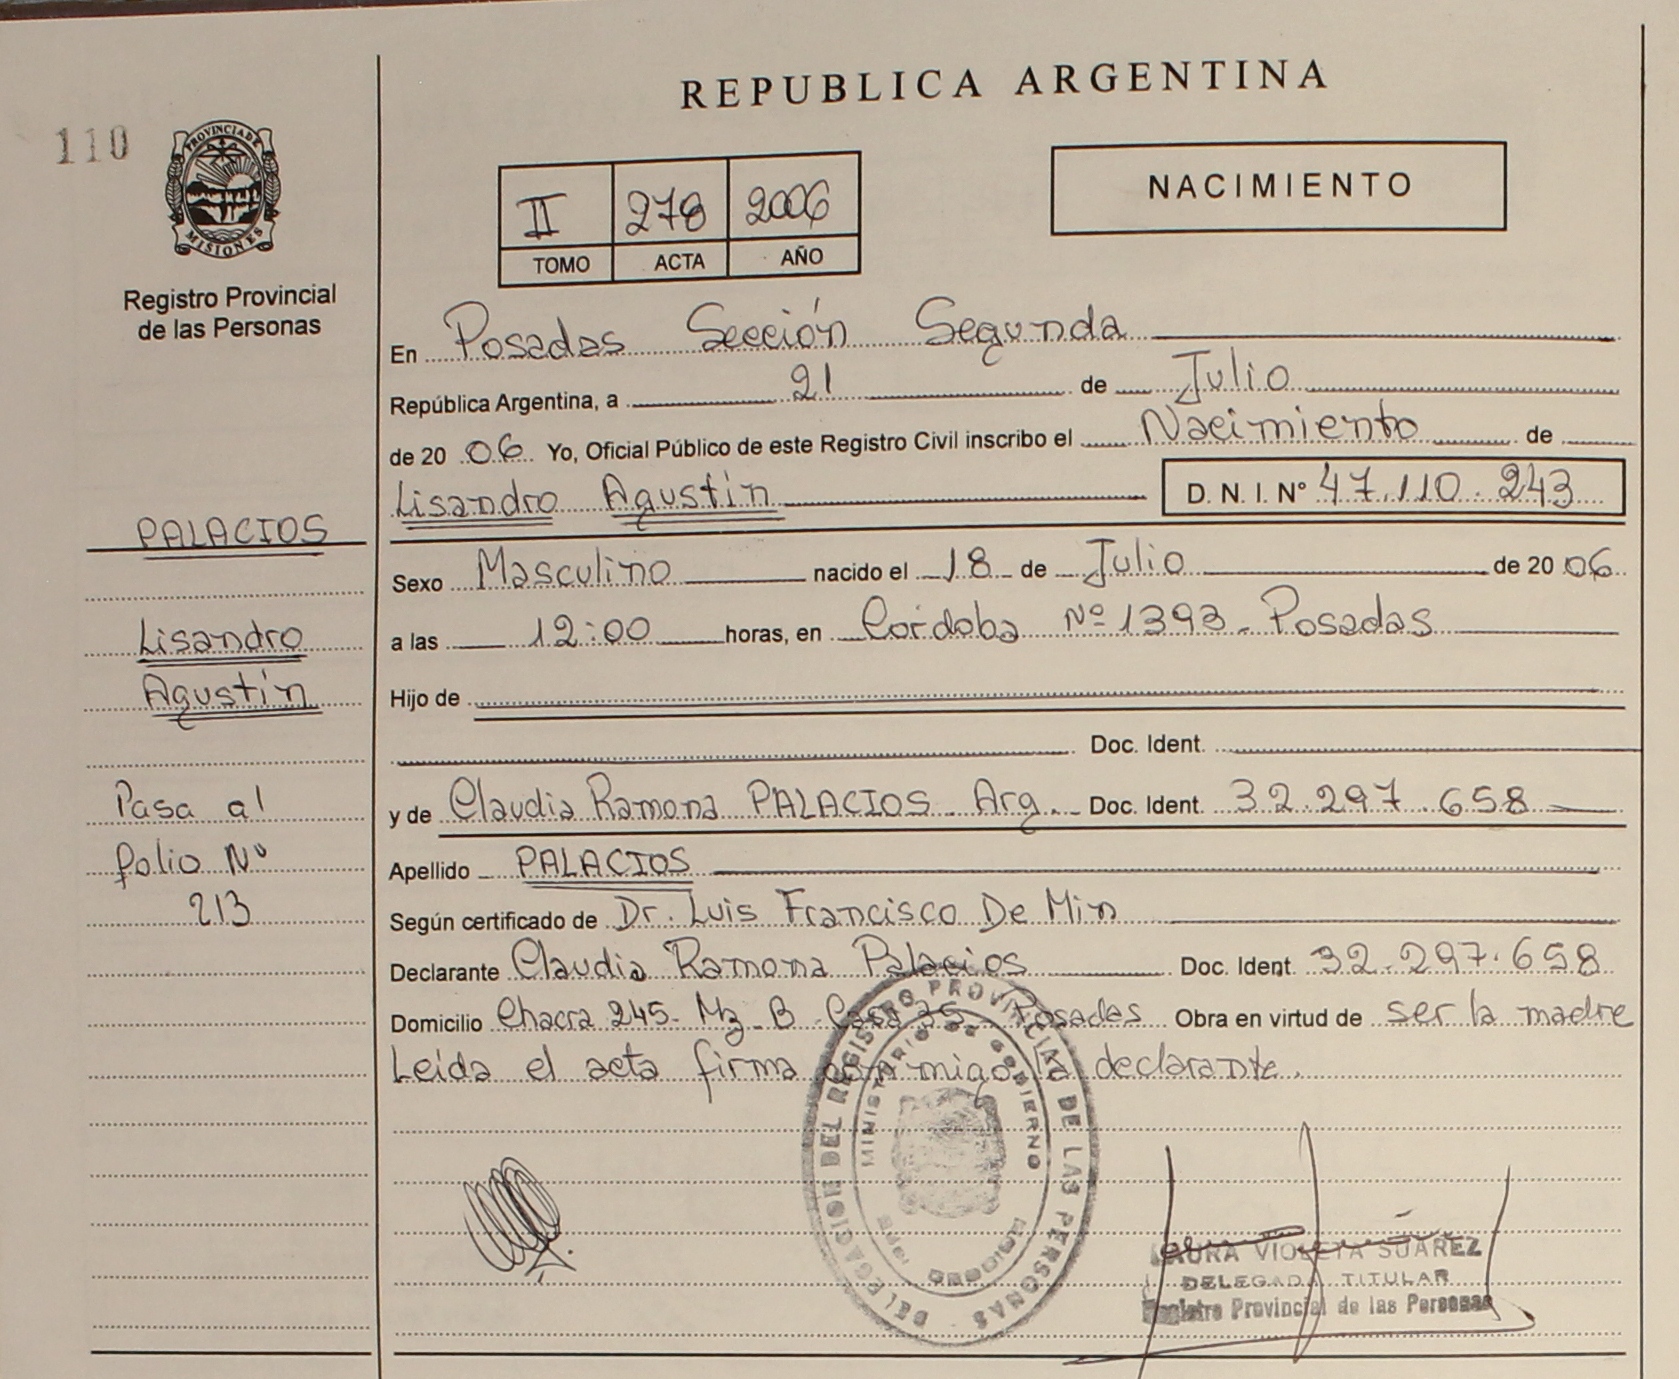 REPUBLICA ARGENTINA
110
PROVINCIA DE
MISIONES
Registro Provincial
de las Personas
II 278 2006
TOMO ACTA AÑO
NACIMIENTO
En Posadas Sección Segunda
República Argentina, a 21 de Julio
de 2006 Yo, Oficial Público de este Registro Civil inscribo el Nacimiento de
Lisandro Agustín D. N. I. Nº 47.110.243
PALACIOS
Lisandro
Agustín
Pasa al
folio Nº
213
Sexo Masculino nacido el 18 de Julio de 2006
a las 12:00 horas, en Córdoba Nº 1393 - Posadas
Hijo de
Doc. Ident.
y de Claudia Ramona PALACIOS Arg. Doc. Ident. 32.297.658
Apellido PALACIOS
Según certificado de Dr. Luis Francisco De Min
Declarante Claudia Ramona Palacios Doc. Ident. 32.297.658
Domicilio Chacra 245 - Mz - B - Casa 35 - Posadas Obra en virtud de ser la madre
Leída el acta firma conmigo la declarante.
DELEGACION DEL REGISTRO PROVINCIAL DE LAS PERSONAS
MINISTERIO DE GOBIERNO
LAURA VIOLETA SUAREZ
DELEGADA TITULAR
Registro Provincial de las Personas